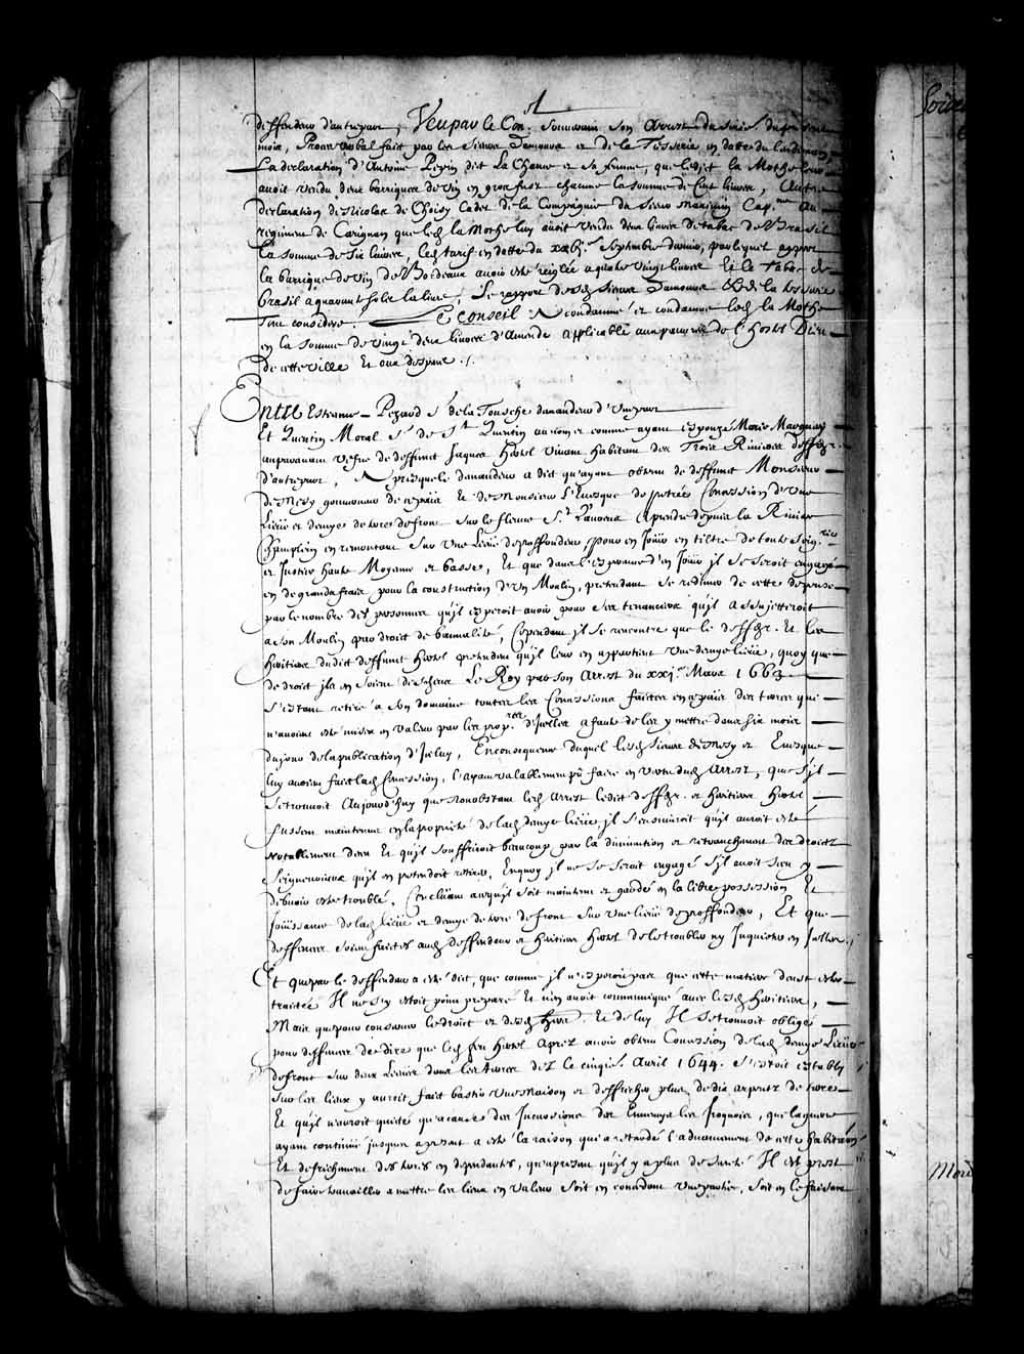 deffendeur d'autre part, Veu par le Con. Souverain son Arrest du present
mois, Procez verbal fait par les Sieurs Damours et de la Tesserie en datte du lendemain,
La declaration d'Antoine Pepin dit La Chance et sa femme, que ledit la Mothe leur
avoit vendu deux barriques de vin en gros pour chacune la somme de Cent livres, Autre
declaration de Nicolas de Choisy Cadet de la Compagnie du Sieur Cap.ne au
regiment de Carignan que led. la Mothe luy avoit vendu deux livres de tabac de Brasil
la somme de six livres, led. tarif en datte du Septembre dernier, par lequel appert
la barrique de vin de Bordeaux avoir esté reiglée a quatre vingt livres Et le tabac de
brasil a quarante solz la livre, Le rapport desd. Sieurs Damours & de la tesserie
Tout consideré. Le Conseil A condamné et condamne led. la Mothe
en la somme de vingt deux livres d'Amende applicable aux pauvres de l'hostel Dieu
de cette ville Et aux despens ./.
Entre Estienne Pezard S.r de la Tousche demandeur d'une part
Et Quentin Moral S.r de S.t Quentin au nom et comme ayant espouzé Marie Marguerie
auparavant vefve de deffunct Jaques Hertel vivant habitant des Trois Rivieres deffr.
d'autre part, Apres que le demandeur a dict qu'ayant obtenu de deffunct Monsieur
de Mesy gouverneur de ce païs Et de Monsieur l'Evesque de petrée Concession d'une
Lieüe et demye de terre de front sur le fleuve S.t Laurens a prendre depuis la Riviere
Champlein en remontant sur une Lieüe de proffondeur, pour en joüir en tiltre de toute Seig.rie
et Justice haute Moyenne et basse, Et que dans l'esperance d'en joüir il se seroit engagé
en de grands fraiz pour la construction d'un Moulin, pretendant se redimer de cette despense
par le nombre des personnes qu'il esperoit avoir pour ses tenanciers qu'il assujetteroit
a son Moulin par droict de bannalité, Cependant il se rencontre que le deffr. Et les
heritiers dudict deffunct Hertel pretendent qu'il leur en appartient une demye lieüe, quoy que
de droict ils en soient descheus Le Roy par son Arrest du xxj.e Mars 1663
s'estant retiré a son domaine toutes les Concessions faictes en ce païs des terres qui
n'avoient esté mises en valeur par les prop.res d'icelles a faute de les y mettre dans six mois
du jour de la publication d'iceluy, En consequence duquel lesd. Sieurs de Mesy et Evesque
luy avoient faict lad. Concession, l'ayant valablement pû faire en vertu dud. Arrest, que s'il
se trouvoit Aujourd'huy que nonobstant led. Arrest ledict deffr. et heritiers Hertel
fussent maintenus en la proprieté de lad. demye lieüe, il s'ensuivroit qu'il auroit esté
notablement deceu Et qu'il souffriroit beaucoup par la diminution et retranchement des droictz
Seigneuriaux qu'il en pretendoit retirer, En quoy il ne se seroit engagé s'il avoit sceu y
debvoir estre troublé, Concluant a ce qu'il soit maintenu et gardé en la libre possession Et
joüissance de lad. Lieüe et demye de terre de front sur une lieüe de proffondeur, Et que
deffences soient faictes aud. deffendeur et heritiers Hertel de le troubler ny Inquieter en Icelle ./
Et que par le deffendeur a esté dict, que comme il n'esperoit pas que cette matiere deust estre
traitée Il ne s'y estoit point preparé Et n'en avoit communiqué avec lesd. heritiers,
Mais que pour conserver le droict et desd. Et de luy Il se trouvoit obligé
pour deffences de dire que led. feu Hertel Apres avoir obtenu Concession de lad. demye Lieüe
de front sur deux Lieües dans les terres dez le cinqie. Avril 1644. s'estoit estably
sur les lieux y auroit fait bastir une maison et deffricher plus de dix arpentz de terre
Et qu'il n'auroit quitté qu'a cause des Incursions des Ennemys les Iroquois, que la guerre
ayant continüé jusques a present a esté la raison qui a retardé l'advancement de cette habitation
Et defrichement des terres en dependantes, qu'a present qu'il y a plus de Sureté Il est prest
de faire travailler a mettre les lieux en valeur soit en concedant une partie, soit en le faisant